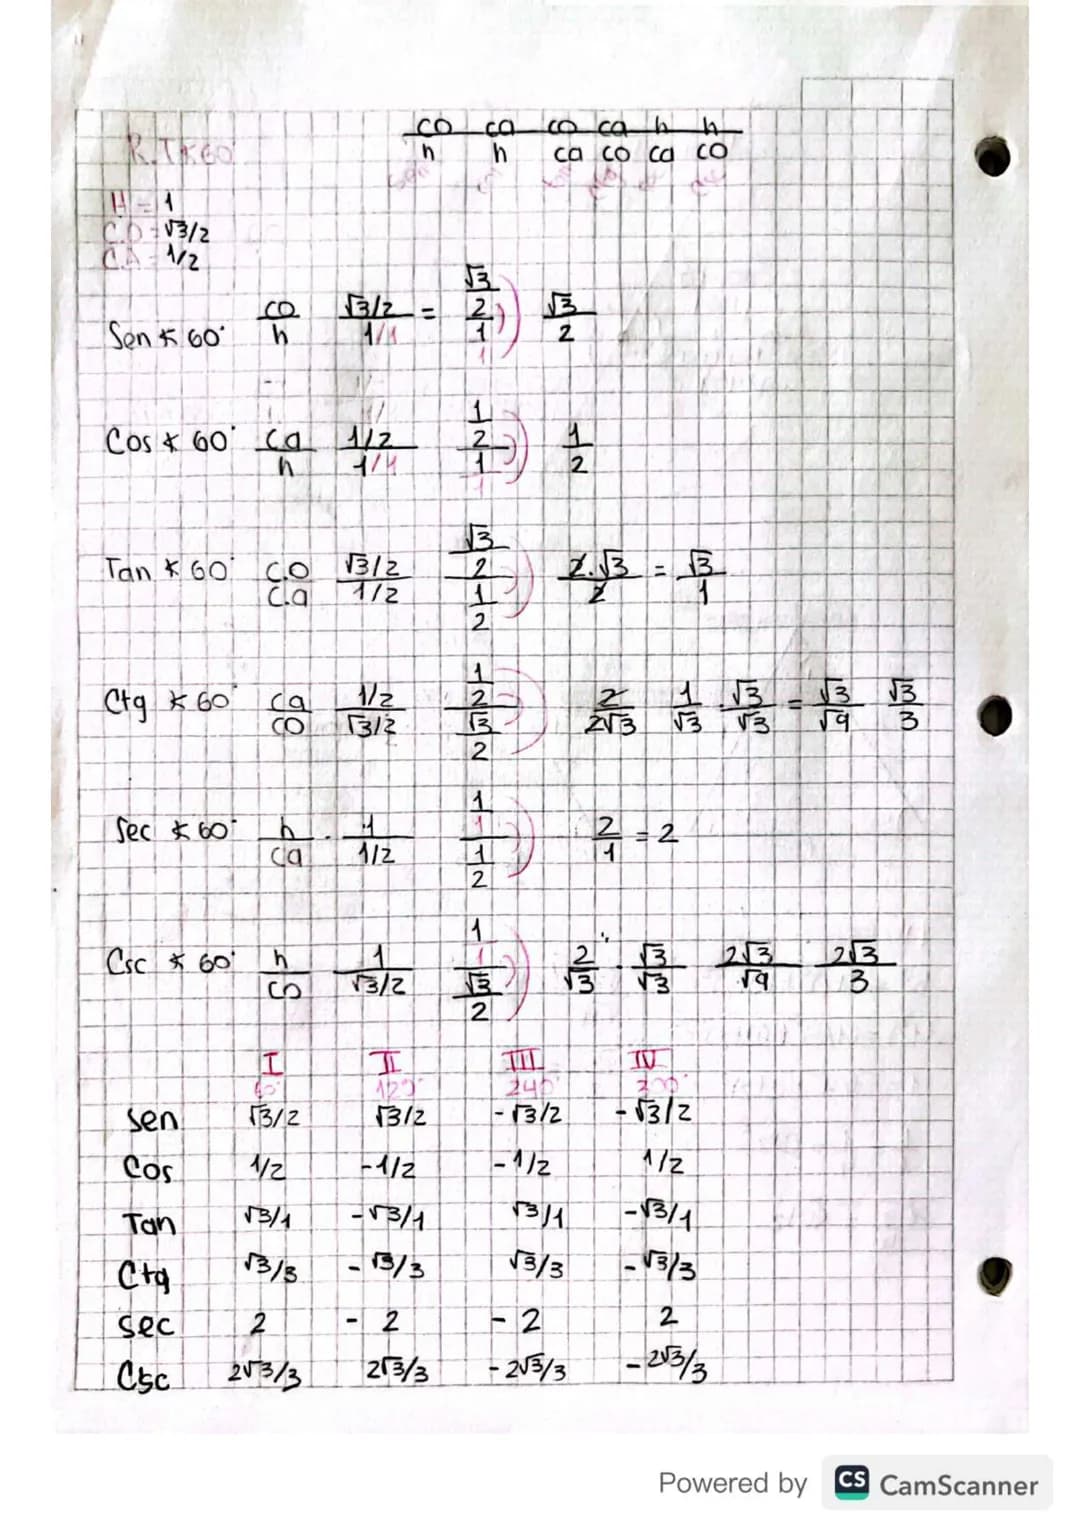 co ca co ca h h
h h ca co ca co
R.T∡60°
H = 1
C.O = √3/2
C.A = 1/2
Sen ∡ 60° co/h √3/2 / 1/1 = √3/2 / 1/1 √3/2
Cos ∡ 60° ca/h 1/2 / 1/1 1/2 / 1/1 1/2
Tan ∡ 60° c.o/c.a √3/2 / 1/2 √3/2 / 1/2 2.√3/2 = √3/1
Ctg ∡ 60° ca/co 1/2 / √3/2 1/2 / √3/2 2/2√3 1/√3 . √3/√3 = √3/√9 √3/3
Sec ∡ 60° h/ca . 1 / 1/2 1/1 / 1/2 2/1 = 2
Csc ∡ 60° h/co 1 / √3/2 1/1 / √3/2 2/√3 . √3/√3 2√3/√9 2√3/3
I II III IV
60° 120° 240° 300°
Sen √3/2 √3/2 -√3/2 -√3/2
Cos 1/2 -1/2 -1/2 1/2
Tan √3/1 -√3/1 √3/1 -√3/1
Ctg √3/3 -√3/3 √3/3 -√3/3
Sec 2 -2 -2 2
Csc 2√3/3 2√3/3 -2√3/3 -2√3/3
Powered by CS CamScanner